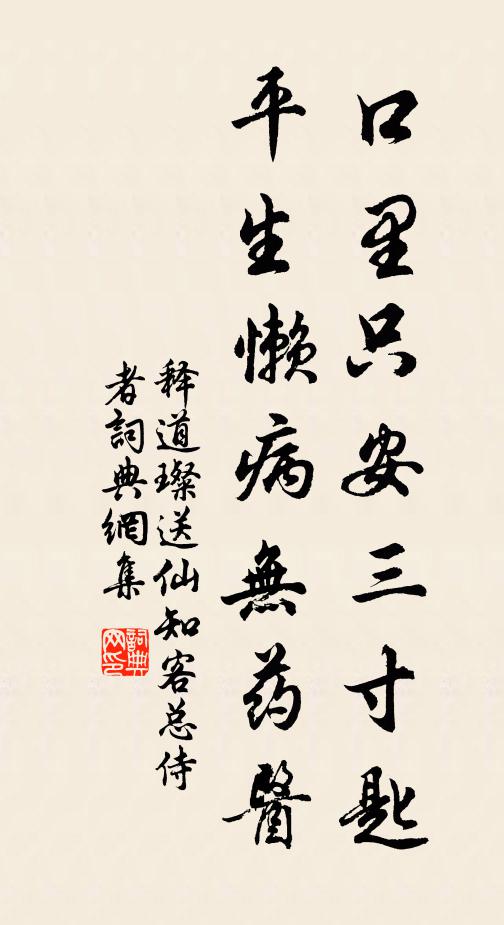 口里只安三寸匙
平生懒病無药醫
释道璨送仙知客总侍
者詞典網集
詞典网印